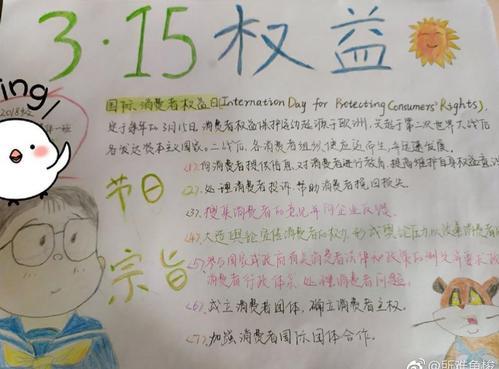 3·15权益
ing/
2018级2
一班
国际消费者权益日(Internation Day for Protecting Consumers' Rights).
定于每年的3月15日,消费者权益保护运动起源于欧洲,
各发达资本主义国家。二战后,各消费者组织便应运而生,并迅速发展。
节日
宗旨
<1>.向消费者提供信息,对消费者进行教育,提高维护自身权益意识
<2>.处理消费者投诉,帮助消费者挽回损失
<3>.搜集消费者的意见并向企业反馈。
<4>.大造舆论,宣传消费者的权力,形成舆论压力,以改善消费者的
<5>.参与国家或政府有关消费者法律和政策的制定,并要求政府
消费者行政体系,处理消费者问题。
<6>.成立消费者团体,确立消费者主权。
<7>.加强消费者国际团体合作。